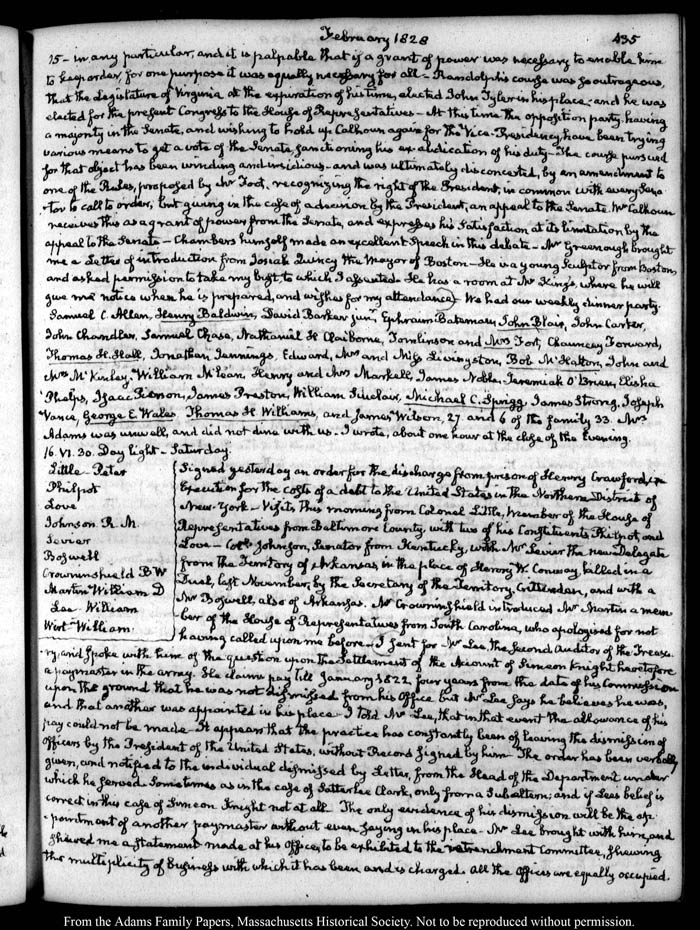 February 1828 435
15- in any particular, and it is palpable that if a grant of power was necessary to enable him
to keep order, for one purpose it was equally necessary for all - Randolph's course was so outrageous,
that the Legislature of Virginia at the expiration of his time, elected John Tyler in his place; and he was
elected for the present Congress to the House of Representatives - At this time the opposition party, having
a majority in the Senate, and wishing to hold up Calhoun again for the Vice-Presidency have been trying
various means to get a vote of the Senate, sanctioning his abdication of his duty - The course pursued
for that object has been winding and insidious - and was ultimately disconcerted, by an amendment to
one of the Rules, proposed by Mr Foot, recognizing the right of the President, in common with every Sena
tor to call to order, but giving in the case of a decision by the President, an appeal to the Senate. Mr Calhoun
receives this as a grant of power from the Senate, and expresses his satisfaction at its limitation by the
appeal to the Senate - Chambers himself made an excellent Speech in this debate - Mr Greenough brought
me a Letter of introduction from Josiah Quincy the Mayor of Boston - He is a young Sculptor from Boston,
and asked permission to take my bust to which I assented. He has a room at Mr King's, where he will
give me notice when he is prepared, and wishes for my attendance. We had our weekly dinner party.
Samuel C. Allen, Henry Baldwin, David Barker junr, Ephraim Bateman, John Blair, John Carter,
John Chandler, Samuel Chase, Nathaniel H Claiborne, Tomlinson and Mrs Fort, Chauncey Forward,
Thomas H. Hall, Jonathan Jennings, Edward, Mrs and Miss Livingston, Bob McHatton, John and
Mrs McKinley, William McLean, Henry and Mrs Markell, James Noble, Jeremiah O'Brien, Elisha
Phelps, Isaac Pierson, James Preston, William Sinclair, Michael C. Sprigg, James Strong, Joseph
Vance, George E. Wales, Thomas H. Williams, and James Wilson, 27 and 6 of the family 33. Mrs
Adams was unwell, and did not dine with us. I wrote, about one hour at the close of the Evening.
16. VI. 30. Day light - Saturday.
Little Peter
Philpot
Love
Johnson R. M
Sevier
Boswell
Crowninshield B W
Martin William D
Lee William
Wirt William
Signed yesterday an order for the discharge from prison of Henry Crawford, in
Execution for the costs of a debt to the United States in the Northern District of
New-York - Visits this morning from Colonel Little, Member of the House of
Representatives from Baltimore County, with two of his Constituents Philpot, and
Love - Coll Johnson, Senator from Kentucky, with Mr Sevier the new Delegate
from the Territory of Arkansas, in the place of Henry W. Conway, killed in a
Duel, last November, by the Secretary of the Territory, Crittenden, and with a
Mr Boswell, also of Arkansas. Mr Crowninshield introduced Mr Martin a mem
ber of the House of Representatives from South Carolina, who apologised for not
having called upon me before - I sent for Mr Lee, the Second Auditor of the Treasu
ry, and spoke with him of the question upon the Settlement of the Account of Simeon Knight heretofore
a paymaster in the army. He claims pay till January 1822, four years from the date of his Commission
upon the ground that he was not dismissed from his Office but Mr Lee says he believes he was,
and that another was appointed in his place. I told Mr Lee, that in that event the allowance of his
pay could not be made - It appears that the practice has constantly been of leaving the dismission of
Officers by the President of the United States, without Record signed by him - The order has been verbally
given, and notified to the individual dismissed by Letter, from the Head of the Department under
which he served. Sometimes as in the case of Satterlee Clark, only from a Subaltern; and if Lees belief is
correct in this case of Simeon Knight not at all. The only evidence of his dismission will be the ap
pointment of another paymaster without even saying in his place - Mr Lee brought with him, and
shewed me a statement made at his Office, to be exhibited to the retrenchment Committee, shewing
the multiplicity of Business with which it has been and is charged. All the Offices are equally occupied.
From the Adams Family Papers, Massachusetts Historical Society. Not to be reproduced without permission.